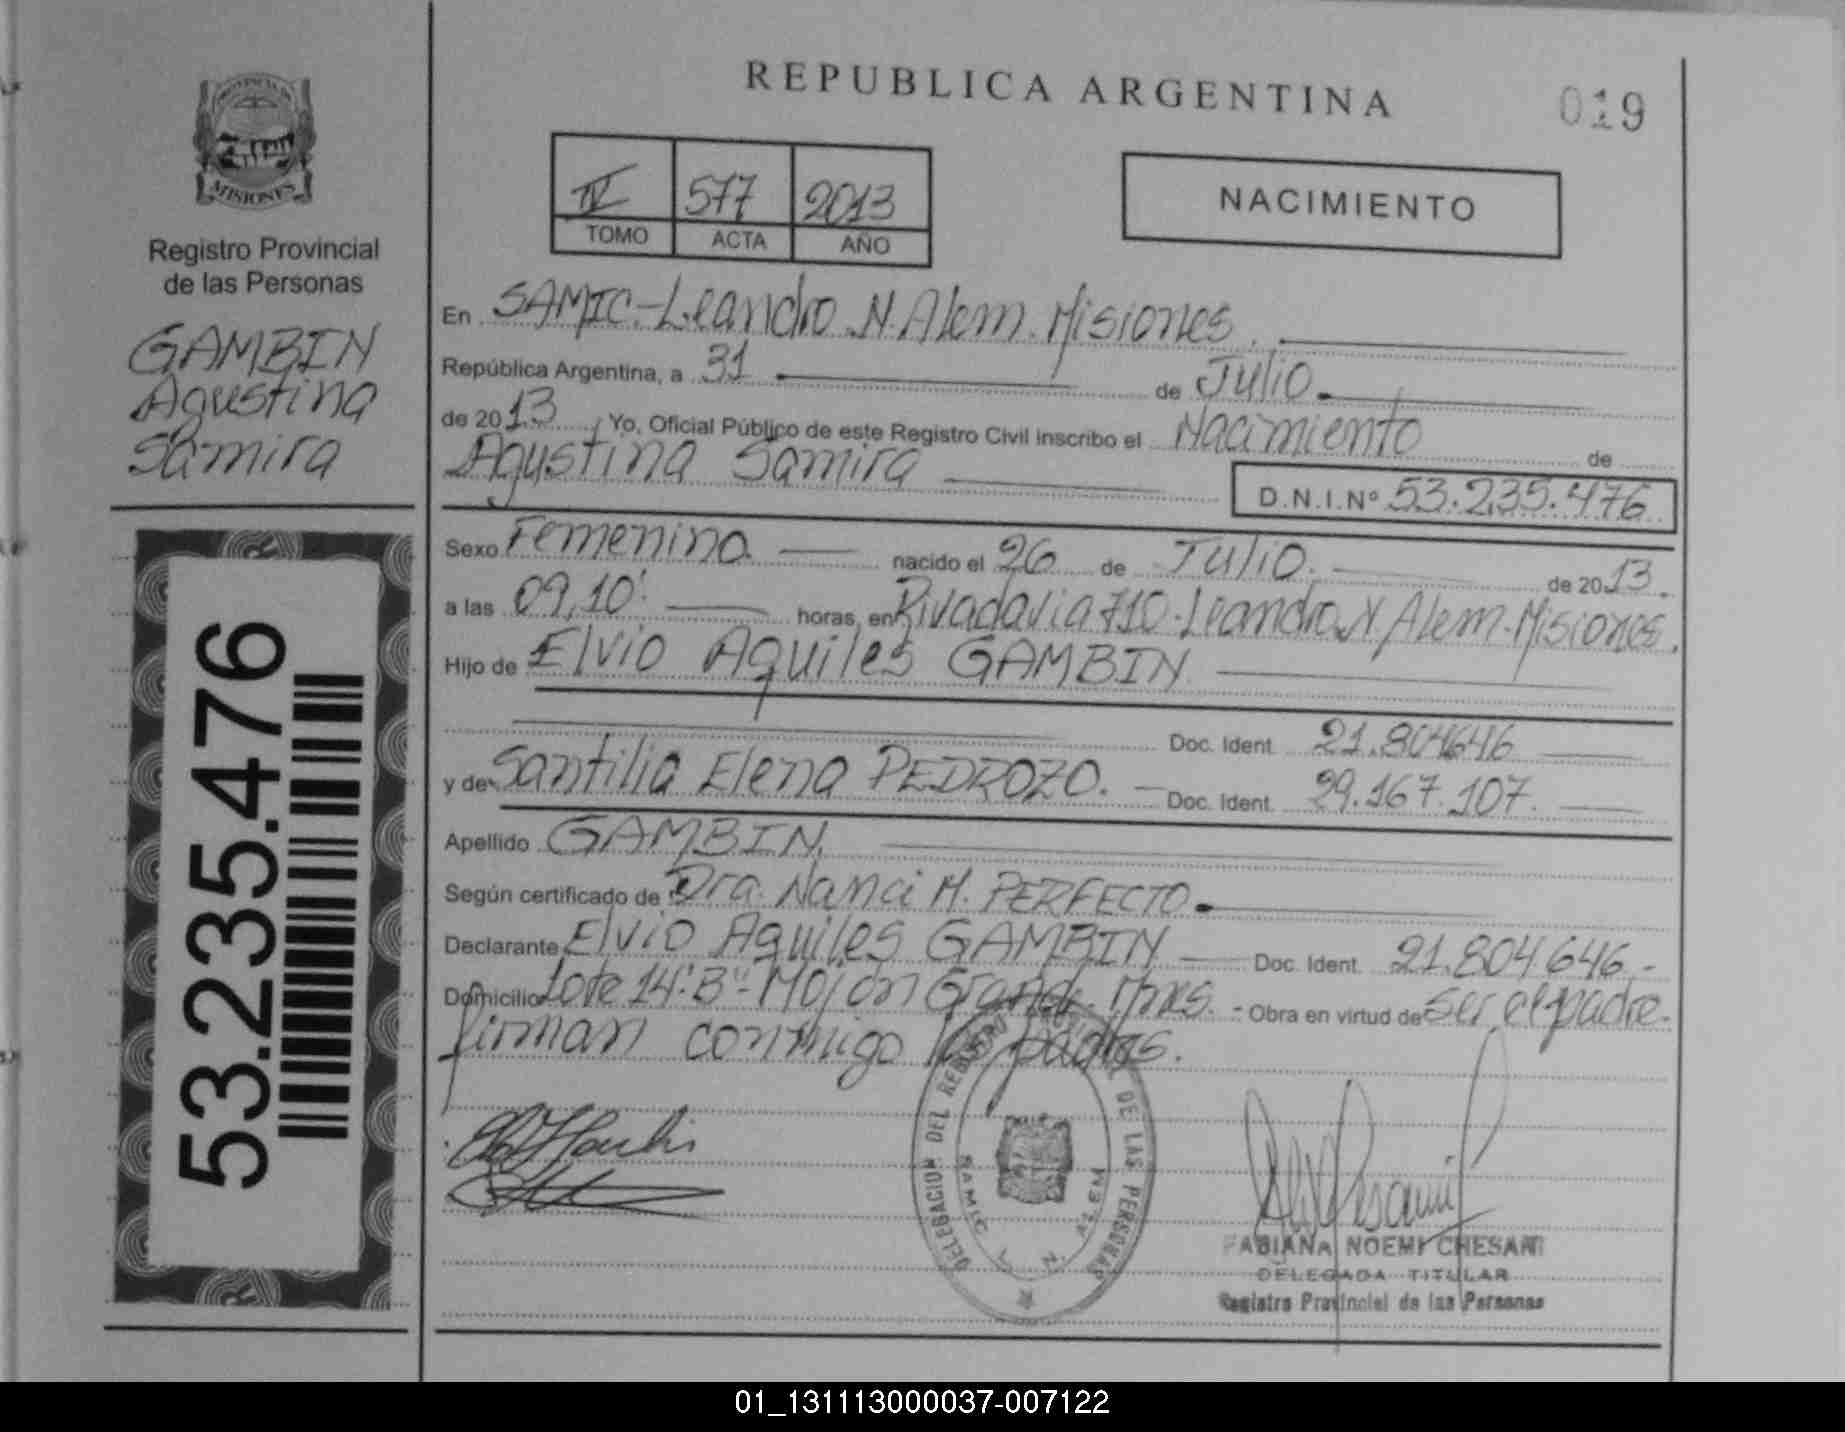 REPUBLICA ARGENTINA
019
PROVINCIA DE
MISIONES
Registro Provincial
de las Personas
GAMBIN
Agustina
Samira
53.235.476
IV 577 2013
TOMO ACTA AÑO
NACIMIENTO
En SAMIC.-Leandro N. Alem. Misiones.
República Argentina, a 31 de Julio.
de 2013, Yo, Oficial Público de este Registro Civil inscribo el Nacimiento de
Agustina Samira D.N.I.Nº 53.235.476
Sexo Femenino. nacido el 26 de Julio. de 2013.
a las 09,10' horas, en Rivadavia 710-Leandro N. Alem-Misiones.
Hijo de Elvio Aquiles GAMBIN.
Doc. Ident. 21.804646
y de Santilia Elena PEDROZO. - Doc. Ident. 29.167.107.
Apellido GAMBIN.
Según certificado de Dra. Nanci M. PERFECTO.
Declarante Elvio Aquiles GAMBIN Doc. Ident. 21.804.646.-
Domicilio Lote 14-"B"-Mojón Grande. Mnes. - Obra en virtud de ser el padre.
firman conmigo los padres.
DELEGACION DEL REGISTRO PROVINCIAL DE LAS PERSONAS
SAMIC L. N. ALEM
FABIANA NOEMI CHESANI
DELEGADA TITULAR
Registro Provincial de las Personas
01_131113000037-007122